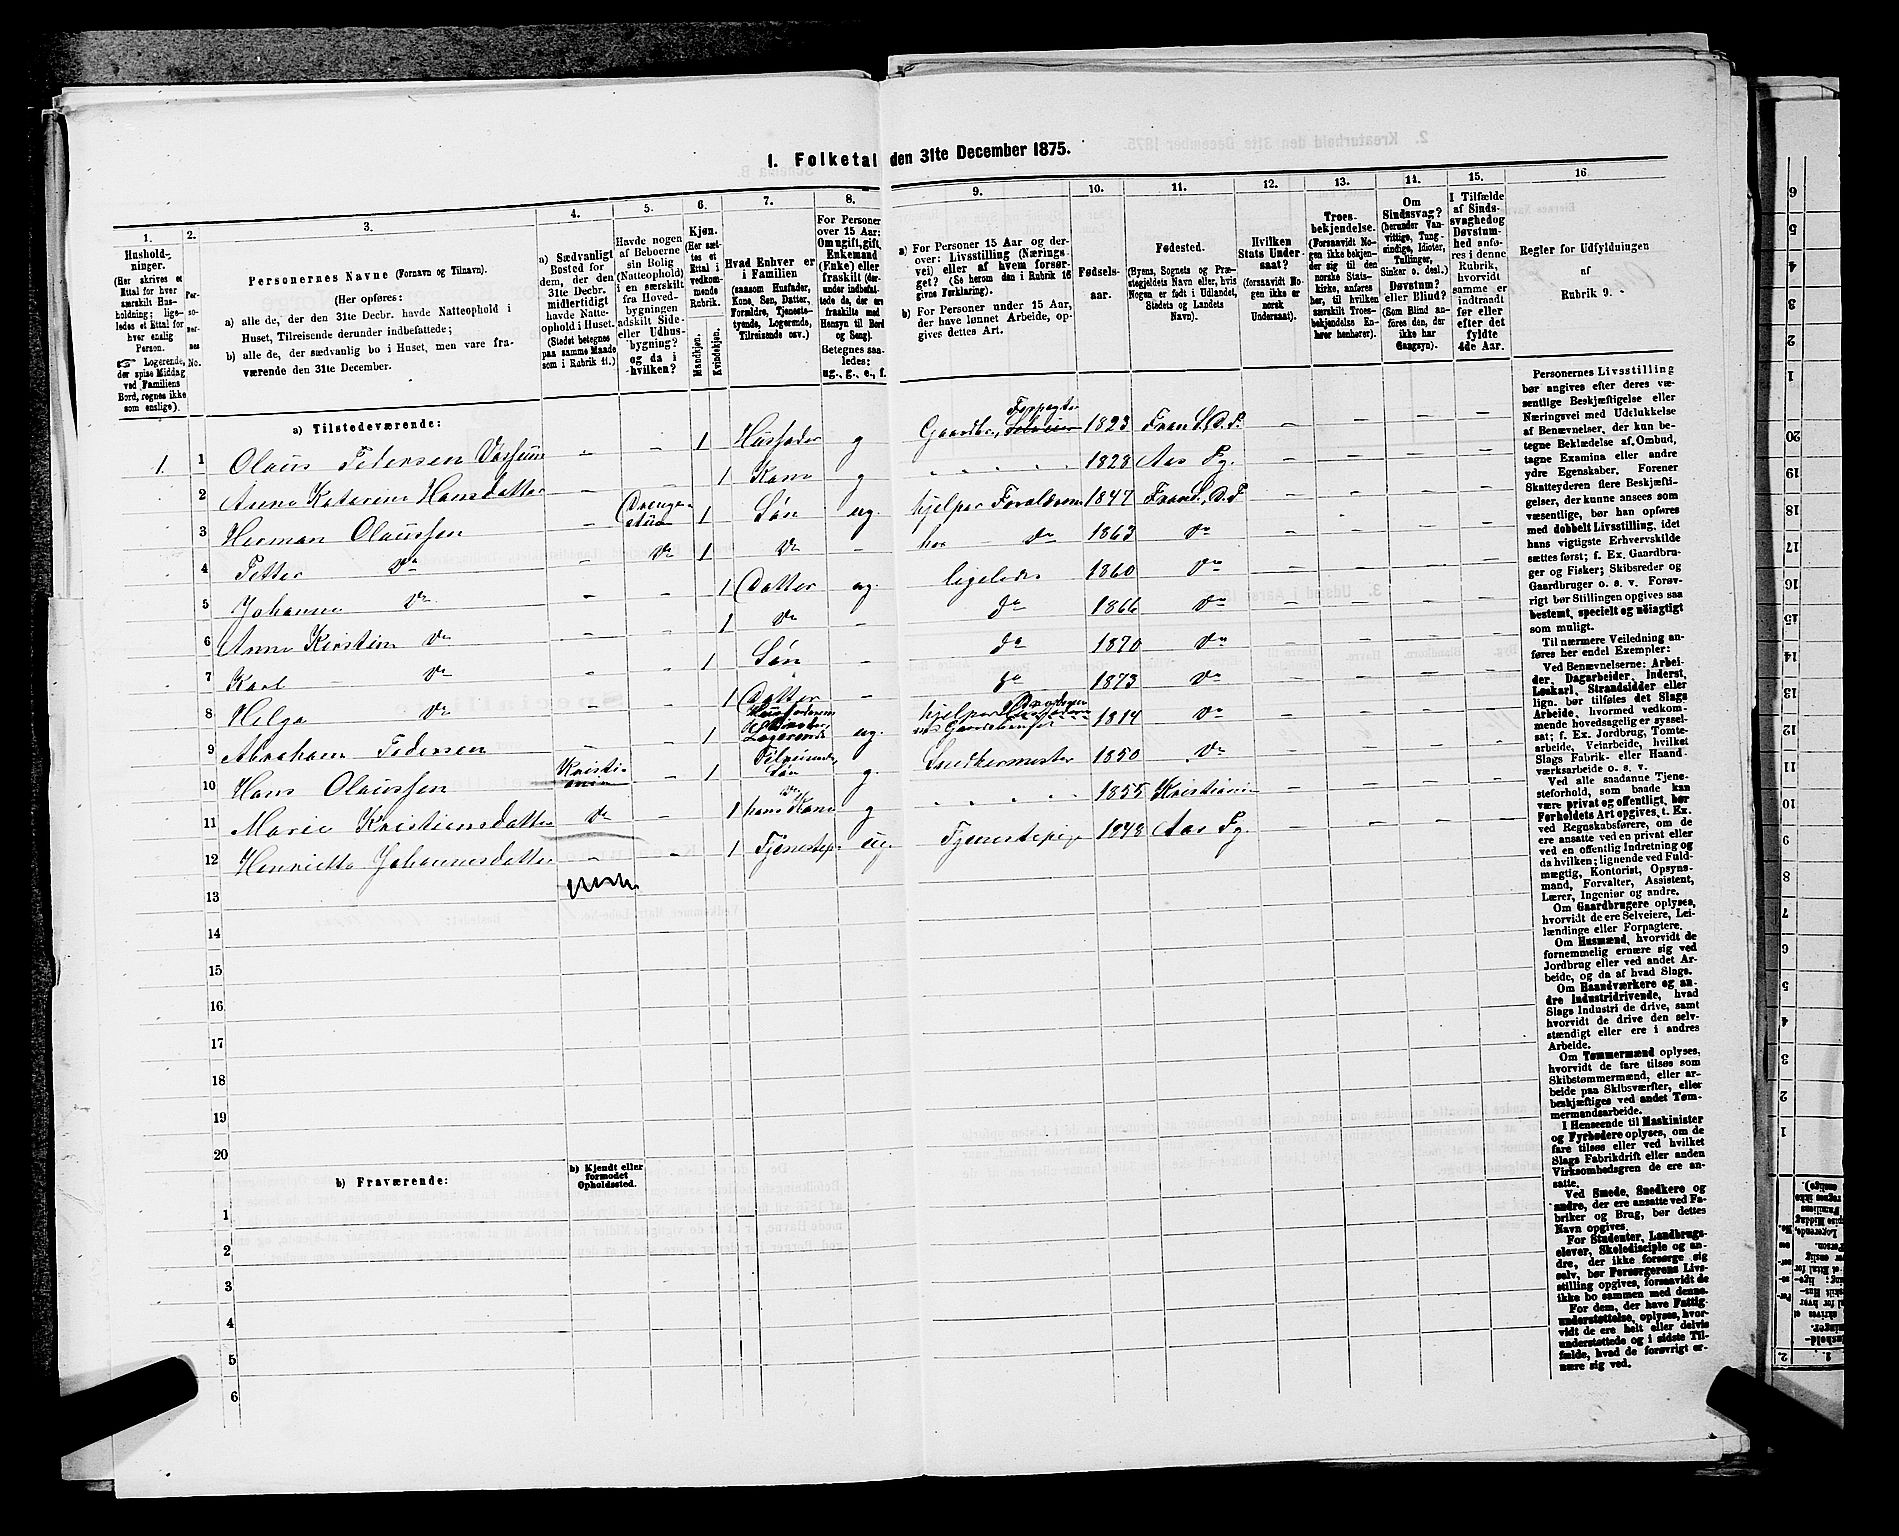 1. Folketal den 31te December 1875.
1. 2. 3. 4. 5. 6. 7. 8. 9. 10. 11. 12. 13. 14. 15. 16
Hushold-
ninger.
(Her skrives et
Ettal for hver
særskilt Hus-
holdning; lige-
ledes et Ettal for
hver enslig
Person.
☞ Logerende,
der spise Middag
ved Familiens
Bord, regnes ikke
som enslige).
Per-
so-
ner-
nes
No.
Personernes Navne (Fornavn og Tilnavn).
(Her opføres:
a) alle de, der den 31te Decbr. havde Natteophold i
Huset, Tilreisende derunder indbefattede;
b) alle de, der sædvanlig bo i Huset, men vare fra-
værende den 31te December.
a) Sædvanligt
Bosted for
dem, der den
31te Decbr.
midlertidigt
havde Natte-
ophold i Huset.
(Stedet betegnes
paa samme Maade
som i Rubrik 11.)
Havde nogen
af Beboerne
sin Bolig
(Natteophold)
i en særskilt
fra Hoved-
bygningen
adskilt Side-
eller Udhus-
bygning?
og da i
hvilken?
Kjøn.
(Her sæt-
tes et
Ettal i
vedkom-
mende
Rubrik.
Mandkjøn.
Kvindekjøn.
Hvad Enhver er
i Familien
(saasom Husfader,
Kone, Søn, Datter,
Forældre, Tjeneste-
tyende, Logerende,
Tilreisende osv.)
For Personer
over 15 Aar:
Om ugift, gift,
Enkemand
(Enke) eller
fraskilt (der-
under indbefat-
tede de, der ere
fraskilte med
Hensyn til Bord
og Seng).
Betegnes saa-
ledes:
ug., g., e., f.
a) For Personer 15 Aar og der-
over: Livsstilling (Nærings-
vei) eller af hvem forsør-
get? (Se herom den i Rubrik 16
givne Forklaring).
b) For Personer under 15 Aar,
der have lønnet Arbeide, op-
gives dettes Art.
Fødsels-
aar.
Fødested.
(Byens, Sognets og Præ-
stegjeldets Navn eller, hvis
Nogen er født i Udlandet,
Stedets og Landets
Navn).
Hvilken
Stats Under-
saat?
(forsaavidt No-
gen ikke er
norsk
Undersaat).
Troes-
bekjendelse.
(Forsaavidt No-
gen ikke bekjen-
der sig til den
norske Stats-
kirke, anføres
her, til hvilken
særskilt Troes-
bekjendelse En-
hver henhører).
Om
Sindssvag?
(herunder Van-
vittige, Tung-
sindige, Idioter,
Tullinger,
Sinker o. desl.)
Døvstum?
eller Blind?
(Som Blind an-
føres den, der
ikke har
Gangsyn).
I Tilfælde
af Sinds-
svaghed og
Døvstum-
hed anfø-
res i denne
Rubrik,
hvorvidt
samme er
indtraadt
før eller
efter det
fyldte
4de Aar.
Regler for Udfyldningen
af
Rubrik 9.
a) Tilstedeværende:
1 1 Olaus Pedersen Vassum - - 1 Husfader g Gaardbr. Forpagter Selveier 1823 Fraun S. D. P. - - - -
2 Anne Katarine Hansdatter - - 1 Kone g " " " " " 1828 Aas Pg. - - - -
3 Herman Olaussen - Drenge-
stue 1 Søn ug. hjelper Forældrene 1847 Fraun S. D. P - - - -
4 Petter Do - Do 1 Do - har - do 1863 Do - - - -
5 Johanne Do - - 1 Datter ug. ligeledes 1860 Do - - - -
6 Anne Kirstine Do - - 1 Do - do 1866 Do - - - -
7 Karl Do - - 1 Søn - do 1870 Do - - - -
8 Helga Do - - 1 Datter - do 1873 Do - - - -
9 Abraham Pedersen - - 1 Husfaderens
Broder
Logerende ug. hjelper Broderen Husfaderen
1814 Do - - - -
10 Hans Olaussen Kristi-
ania - 1 Tilreisende
Søn g. Snedkermester 1850 Do - - - -
11 Marie Kristiansdatter Do - 1 do
hans Kone g " " " " " 1855 Kristiania - - - -
12 Henriette Johannesdatter - - 1 Tjenestep. ug. Tjenestepige 1848 Aas Pg. - - - -
13
14
15
16
17
18
19
20
b) Fraværende:
b) Kjendt eller
formodet
Opholdssted.
1
2
3
4
5
6
Personernes Livsstilling
bør angives efter deres væ-
sentlige Beskjæftigelse eller
Næringsvei med Udelukkelse
af Benævnelser, der kun be-
tegne Beklædelse af Ombud,
tagne Examina eller andre
ydre Egenskaber. Forener
Skatteyderen flere Beskjæfti-
gelser, der kunne ansees som
væsentlige, bør han opføres
med dobbelt Livsstilling, idet
hans vigtigste Erhvervskilde
sættes først; f. Ex. Gaardbru-
ger og Fisker; Skibsreder og
Gaardbruger o. s. v. Forøv-
rigt bør Stillingen opgives saa
bestemt, specielt og nøiagtigt
som muligt.
Til nærmere Veiledning an-
føres her endel Exempler:
Ved Benævnelserne: Arbei-
der, Dagarbeider, Inderst,
Løskarl, Strandsidder eller
lign. bør tilføies det Slags
Arbeide, hvormed vedkom-
mende hovedsagelig er syssel-
sat; f. Ex. Jordbrug, Tomte-
arbeide, Veiarbeide, hvilket
Slags Fabrik- eller Haand-
værksarbeide o. s. v.
Ved alle saadanne Tjene-
steforhold, som baade kan
være privat og offentligt, bør
Forholdets Art opgives, t. Ex.
ved Regnskabsførere, om de
ere ansatte ved en privat eller
ved en offentlig Indretning og
da hvilken; lignende ved Fuld-
mægtig, Kontorist, Opsyns-
mand, Forvalter, Assistent,
Lærer, Ingeniør og andre.
Om Gaardbrugere oplyses,
hvorvidt de ere Selveiere, Lei-
lændinge eller Forpagtere.
Om Husmænd, hvorvidt de
fornemmelig ernære sig ved
Jordbrug eller ved andet Ar-
beide, og da af hvad Slags.
Om Haandværkere og an-
dre Industridrivende, hvad
Slags Industri de drive, samt
hvorvidt de drive den selv-
stændigt eller ere i andres
Arbeide.
Om Tømmermænd oplyses,
hvorvidt de fare tilsøs som
Skibstømmermænd, eller ar-
beide paa Skibsværfter, eller
beskjæftiges ved andet Tøm-
mermandsarbeide.
I Henseende til Maskinister
og Fyrbødere oplyses, om de
fare tilsøs eller ved hvilket
Slags Fabrikdrift eller anden
Virksomhedsgren de ere an-
satte.
Ved Smede, Snedkere og
andre, der ere ansatte ved Fa-
briker og Brug, bør dettes
Navn opgives.
For Studenter, Landbrugs-
elever, Skoledisciple og an-
dre, der ikke forsørge sig
selv, bør Forsørgerens Livs-
stilling opgives, forsaavidt de
ikke bo sammen med denne.
For dem, der have Fattig-
understøttelse, oplyses, hvor-
vidt de ere helt eller delvis
understøttede og i sidste Til-
fælde, hvad de forøvrigt er-
nære sig ved.